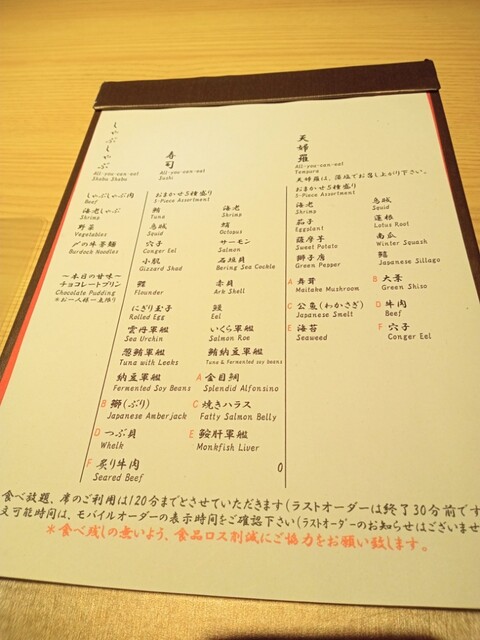 しゃぶしゃぶ
All-you-can-eat
Shabu Shabu
しゃぶしゃぶ肉
Beef
海老しゃぶ
Shrimp
野菜
Vegetables
〆の牛蒡麺
Burdock Noodles
～本日の甘味～
チョコレートプリン
Chocolate Pudding
※お一人様一点限り
寿司
All-you-can-eat
Sushi
おまかせ5種盛り
5-Piece Assortment
鮪
Tuna
海老
Shrimp
烏賊
Squid
蛸
Octopus
穴子
Conger Eel
サーモン
Salmon
小肌
Gizzard Shad
石垣貝
Bering Sea Cockle
鰈
Flounder
赤貝
Ark Shell
にぎり玉子
Rolled Egg
鰻
Eel
雲丹軍艦
Sea Urchin
いくら軍艦
Salmon Roe
葱鮪軍艦
Tuna with Leeks
鮪納豆軍艦
Tuna & Fermented soy beans
納豆軍艦
Fermented Soy Beans
A 金目鯛
Splendid Alfonsino
B 鰤(ぶり)
Japanese Amberjack
C 焼きハラス
Fatty Salmon Belly
D つぶ貝
Whelk
E 鮟肝軍艦
Monkfish Liver
F 炙り牛肉
Seared Beef
天婦羅
All-you-can-eat
Tempura
天婦羅は、藻塩でお召し上がり下さい。
おまかせ5種盛り
5-Piece Assortment
海老
Shrimp
烏賊
Squid
茄子
Eggplant
蓮根
Lotus Root
薩摩芋
Sweet Potato
南瓜
Winter Squash
獅子唐
Green Pepper
鱚
Japanese Sillago
A 舞茸
Maitake Mushroom
B 大葉
Green Shiso
C 公魚(わかさぎ)
Japanese Smelt
D 牛肉
Beef
E 海苔
Seaweed
F 穴子
Conger Eel
食べ放題、席のご利用は120分までとさせていただきます(ラストオーダーは終了30分前です
文可能時間は、モバイルオーダーの表示時間をご確認下さい(ラストオーダーのお知らせはございませ
＊食べ残しの無いよう、食品ロス削減にご協力をお願い致します。